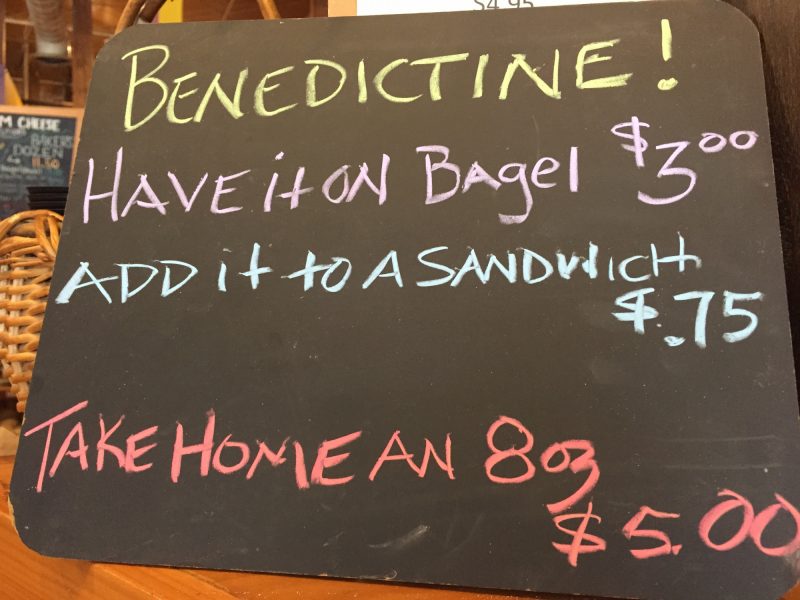 $4.95
BENEDICTINE!
HAVE it ON BAgel $3.00
ADD it to A SANDWICH
$.75
TAKE HOME AN 8oz
$5.00
M CHEESE
BAKERS
DOOZEN
11.50